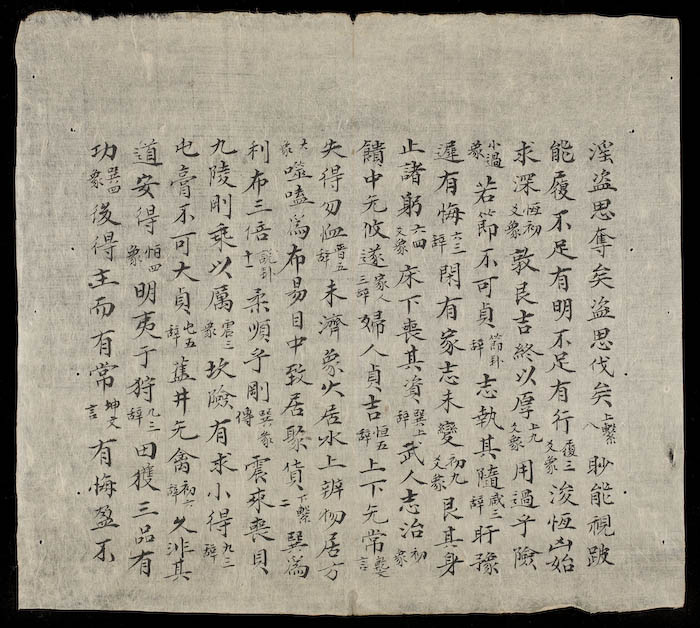 淫盜思奪矣盜思伐矣上繫八眇能視跛
能履不足有明不足有行履三爻象浚恆凶始
求深恆初爻象敦艮吉終以厚上九爻象用過乎險
小過象若節不可貞節卦辭志執其隨咸三辭盱豫
遲有悔六三辭閑有家志未變初九爻象艮其身
止諸躬六四爻象床下喪其資巽上辭武人志治初象
饋中无攸遂家人三辭婦人貞吉恒五辭上下无常言
失得勿恤晉五辭未濟象火居水上辨物居方
大象噬嗑為布易日中致居聚貨下繫二巽為
利布三倍說卦十一柔順乎剛巽彖傳震來喪貝
九陵剛乘以厲震二象坎險有求小得九二辭
屯膏不可大貞屯五辭舊井无禽初六辭久非其
道安得恒四象明夷于狩九三辭田獲三品有
功巽四象後得主而有常坤文言有悔盈不